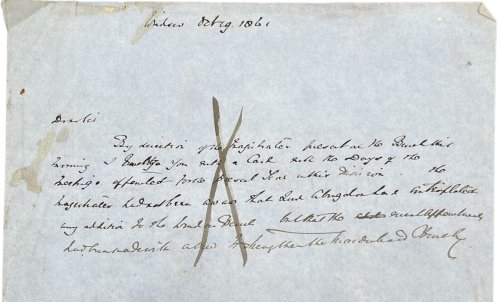 Windsor Oct 29 1861
Dear Sir
By direction of the Magistrates present on the Bench this
morning I you with a Card with the Days of the
Meetings appointed for the several in this Division. The
Magistrates had not been aware that Lord Abingdon had contemplated
any addition to the Bench but that the several appointments
had been made with a view to strengthen the Maidenhead Bench